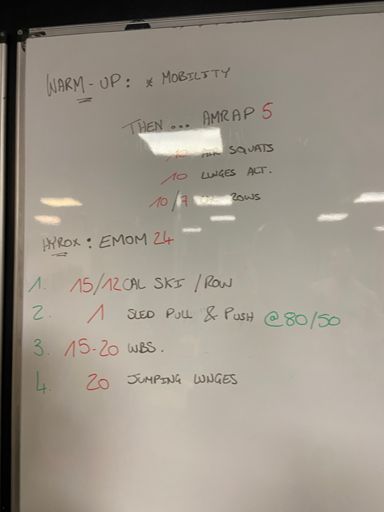 WARM-UP: * MOBILITY
THEN... AMRAP 5
10 AIR SQUATS
10 LUNGES ALT.
10/7 ROWS
HYROX: EMOM 24
1. 15/12 CAL SKI / ROW
2. 1 SLED PULL & PUSH @80/50
3. 15-20 WBS.
4. 20 JUMPING LUNGES